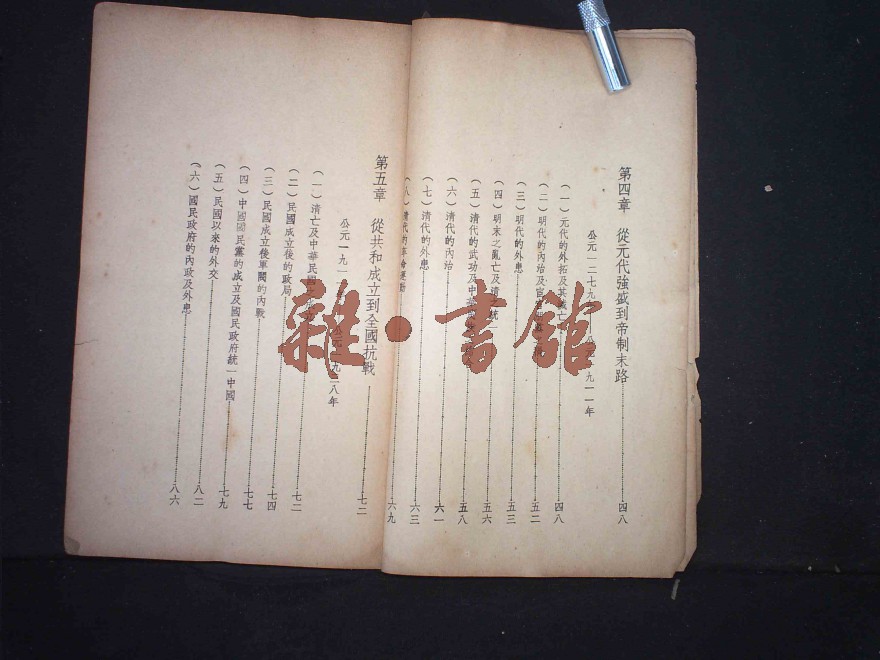 第四章 從元代強盛到帝制末路 四八
公元一二七九 公元一九一一年
(一)元代的外拓及其滅亡 四八
(二)明代的內治及宦 五二
(三)明代的外患 五三
(四)明末之亂亡及清之統一 五六
(五)清代的武功及中華 五八
(六)清代的內治 六一
(七)清代的外患 六三
(八)清代的革命運動 六九
第五章 從共和成立到全國抗戰 七二
公元一九一 公元一九二八年
(一)清亡及中華民國之成立 七二
(二)民國成立後的政局 七二
(三)民國成立後軍閥的內戰 七四
(四)中國國民黨的成立及國民政府統一中國 七七
(五)民國以來的外交 七九
(六)國民政府的內政及外患 八二
八六
雜·書館